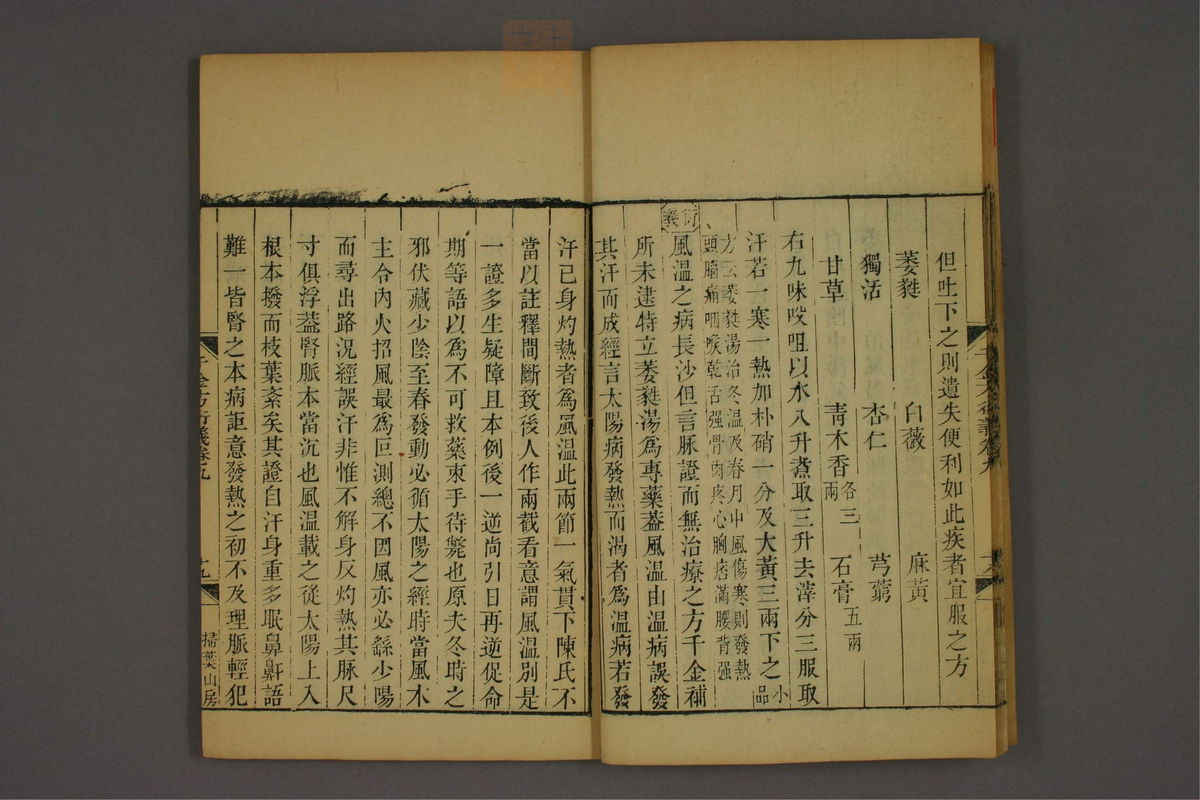 但吐下之則遺失便利如此疾者宜服之方
萎蕤 白薇 麻黃
獨活 杏仁 芎藭
甘草 青木香各三兩 石膏五兩
右九味㕮咀以水八升煮取三升去滓分三服取
汗若一寒一熱加朴硝一分及大黃三兩下之小品
方云萎蕤湯治冬温及春月中風傷寒則發熱
頭腦痛咽喉乾舌强骨肉疼心胸痞滿腰背强
衍義
風溫之病長沙但言脉證而無治療之方千金補
所未逮特立萎蕤湯爲專藥葢風溫由溫病誤發
其汗而成經言太陽病發熱而渴者爲溫病若發
千金方衍義卷五
汗已身灼熱者爲風溫此兩節一氣貫下陳氏不
當以註釋間斷致後人作兩截看意謂風溫別是
一證多生疑障且本例後一逆尚引日再逆促命
期等語以爲不可救藥束手待斃也原夫冬時之
邪伏藏少陰至春發動必循太陽之經時當風木
主令內火招風最爲叵測總不因風亦必繇少陽
而尋出路況經誤汗非惟不解身反灼熱其脉尺
寸俱浮葢腎脉本當沉也風溫載之從太陽上入
根本撥而枝葉紊矣其證自汗身重多眠鼻鼾語
難一皆腎之本病詎意發熱之初不及理脈輕犯
千金方衍義卷五
十九
掃葉山房